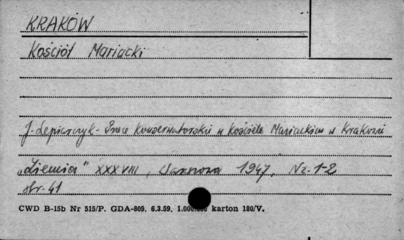 KRAKÓW
Kościół Mariacki
J. Lepiarczyk - Prace Konserwatorskie w Kościele Mariackim w Krakowie
„Ziemia" XXXVIII, Warszawa 1947, Nr. 1-2
str. 41
CWD B-15b Nr 515/P. GDA-809. 6.3.59. 1.000.000 karton 180/V.